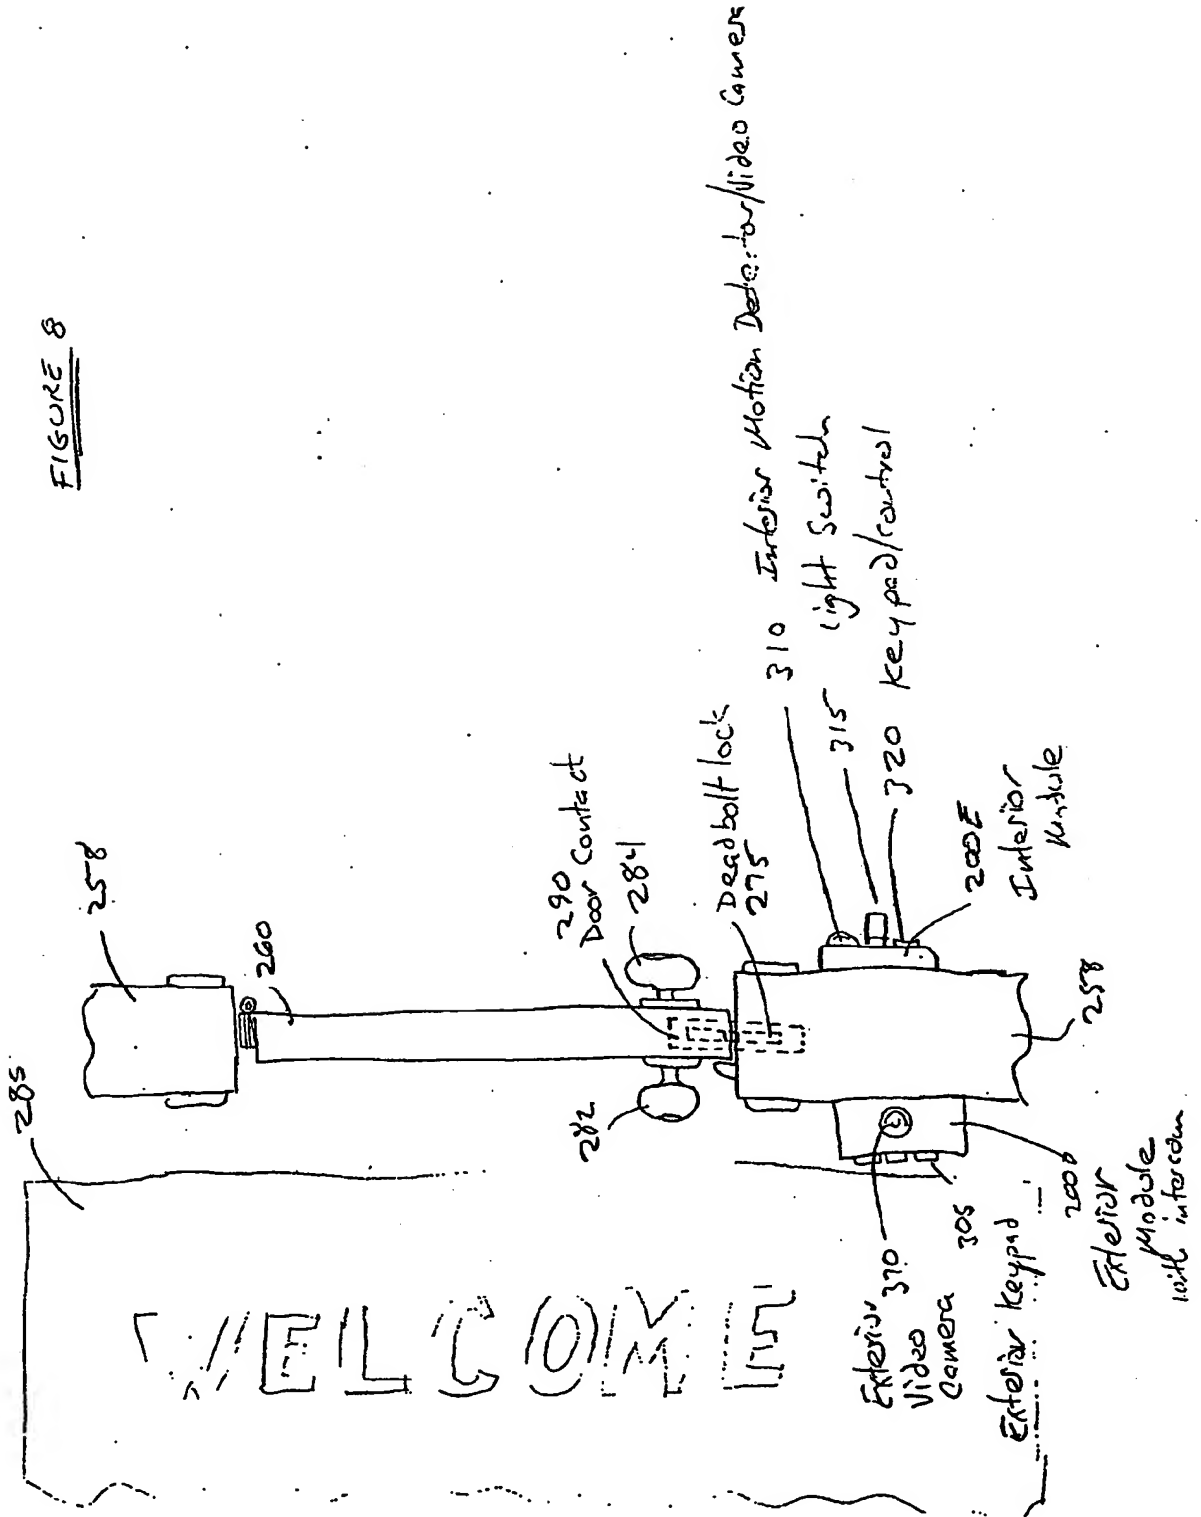 FIGURE 8
285
258
260
290
Door Contact
284
282
Deadbolt lock
275
310 Interior Motion Detector/Video Camera
315 Light Switch
320 Keypad/control
200E
Interior
Module
258
WELCOME
Exterior
Video
Camera
370
305
Exterior Keypad
200D
Exterior
Module
with intercom